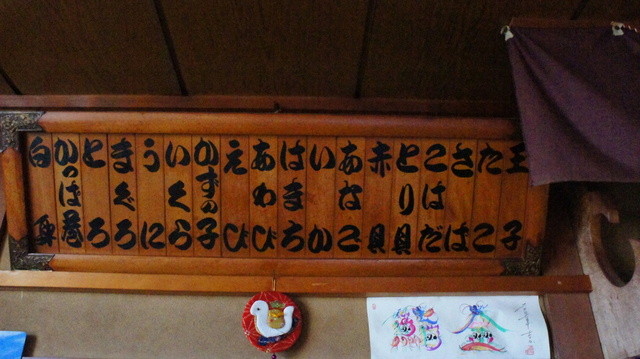 玉子
たこ
さば
こはだ
とり貝
赤貝
あなご
いか
はまち
あわび
えび
かずの子
いくら
うに
まぐろ
とろ
かっぱ巻
白身